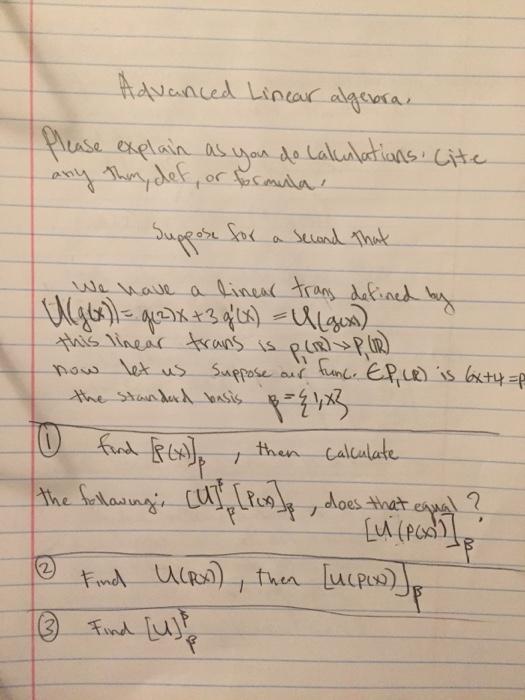 Advanced Linear algebra.
Please explain as you do calculations. Cite
any Thm, def, or formula.
Suppose for a second that
We have a linear trans defined by
U(g(x)) = g(2)x+3g'(x) = U(g(x))
this linear trans is P₁(ℝ)→P₁(ℝ)
now let us suppose our func. ∈P₁(ℝ) is 6x+4 = P
the standard basis β = {1,x}
① find [P(x)]β , then calculate
the following: [U]ββ [P(x)]β , does that equal ?
[U(P(x))]β
② Find U(P(x)) , then [U(P(x))]β
③ Find [U]ββ